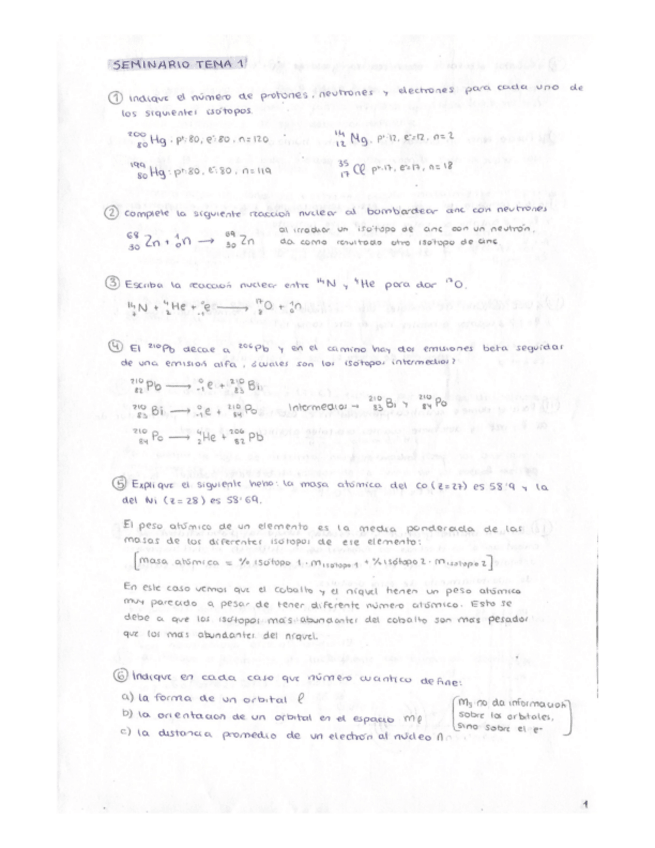 SEMINARIO TEMA 1
① Indique el número de protones, neutrones y electrones para cada uno de
los siguientes isótopos.
²⁰⁰₈₀Hg. p⁺:80, e⁻:80, n=120 ¹⁴₁₂Mg. p⁺:12, e⁻:12, n=2
¹⁹⁹₈₀Hg: p⁺:80, e⁻:80, n=119 ³⁵₁₇Cl p⁺:17, e⁻:17, n=18
② Complete la siguiente reacción nuclear al bombardear zinc con neutrones
⁶⁸₃₀Zn + ¹₀n → ⁶⁹₃₀Zn al irradiar un isótopo de zinc con un neutrón,
da como resultado otro isótopo de zinc.
③ Escriba la reacción nuclear entre ¹⁴N y ⁴He para dar ¹⁷O.
¹⁴N + ⁴₂He + ⁰₋₁e → ¹⁷₈O + ¹₀n
④ El ²¹⁰Pb decae a ²⁰⁶Pb y en el camino hay dos emisiones beta seguidas
de una emisión alfa, ¿cuáles son los isótopos intermedios?
²¹⁰₈₂Pb → ⁰₋₁e + ²¹⁰₈₃Bi
²¹⁰₈₃Bi → ⁰₋₁e + ²¹⁰₈₄Po Intermedios → ²¹⁰₈₃Bi y ²¹⁰₈₄Po
²¹⁰₈₄Po → ⁴₂He + ²⁰⁶₈₂Pb
⑤ Explique el siguiente heho: la masa atómica del Co (Z=27) es 58'9 y la
del Ni (Z=28) es 58'69.
El peso atómico de un elemento es la media ponderada de las
masas de los diferentes isótopos de ese elemento:
[masa atómica = % isótopo 1 · m isótopo 1 + % isótopo 2 · m isótopo 2]
En este caso vemos que el cobalto y el níquel tienen un peso atómico
muy parecido a pesar de tener diferente número atómico. Esto se
debe a que los isótopos más abundantes del cobalto son mas pesador
que los mas abundantes del níquel.
⑥ Indique en cada caso que número cuántico define:
a) la forma de un orbital ℓ
b) la orientacion de un orbital en el espacio mℓ
c) la distancia promedio de un electrón al núcleo n
[ms no da información
sobre los orbitales,
sino sobre el e⁻]
1